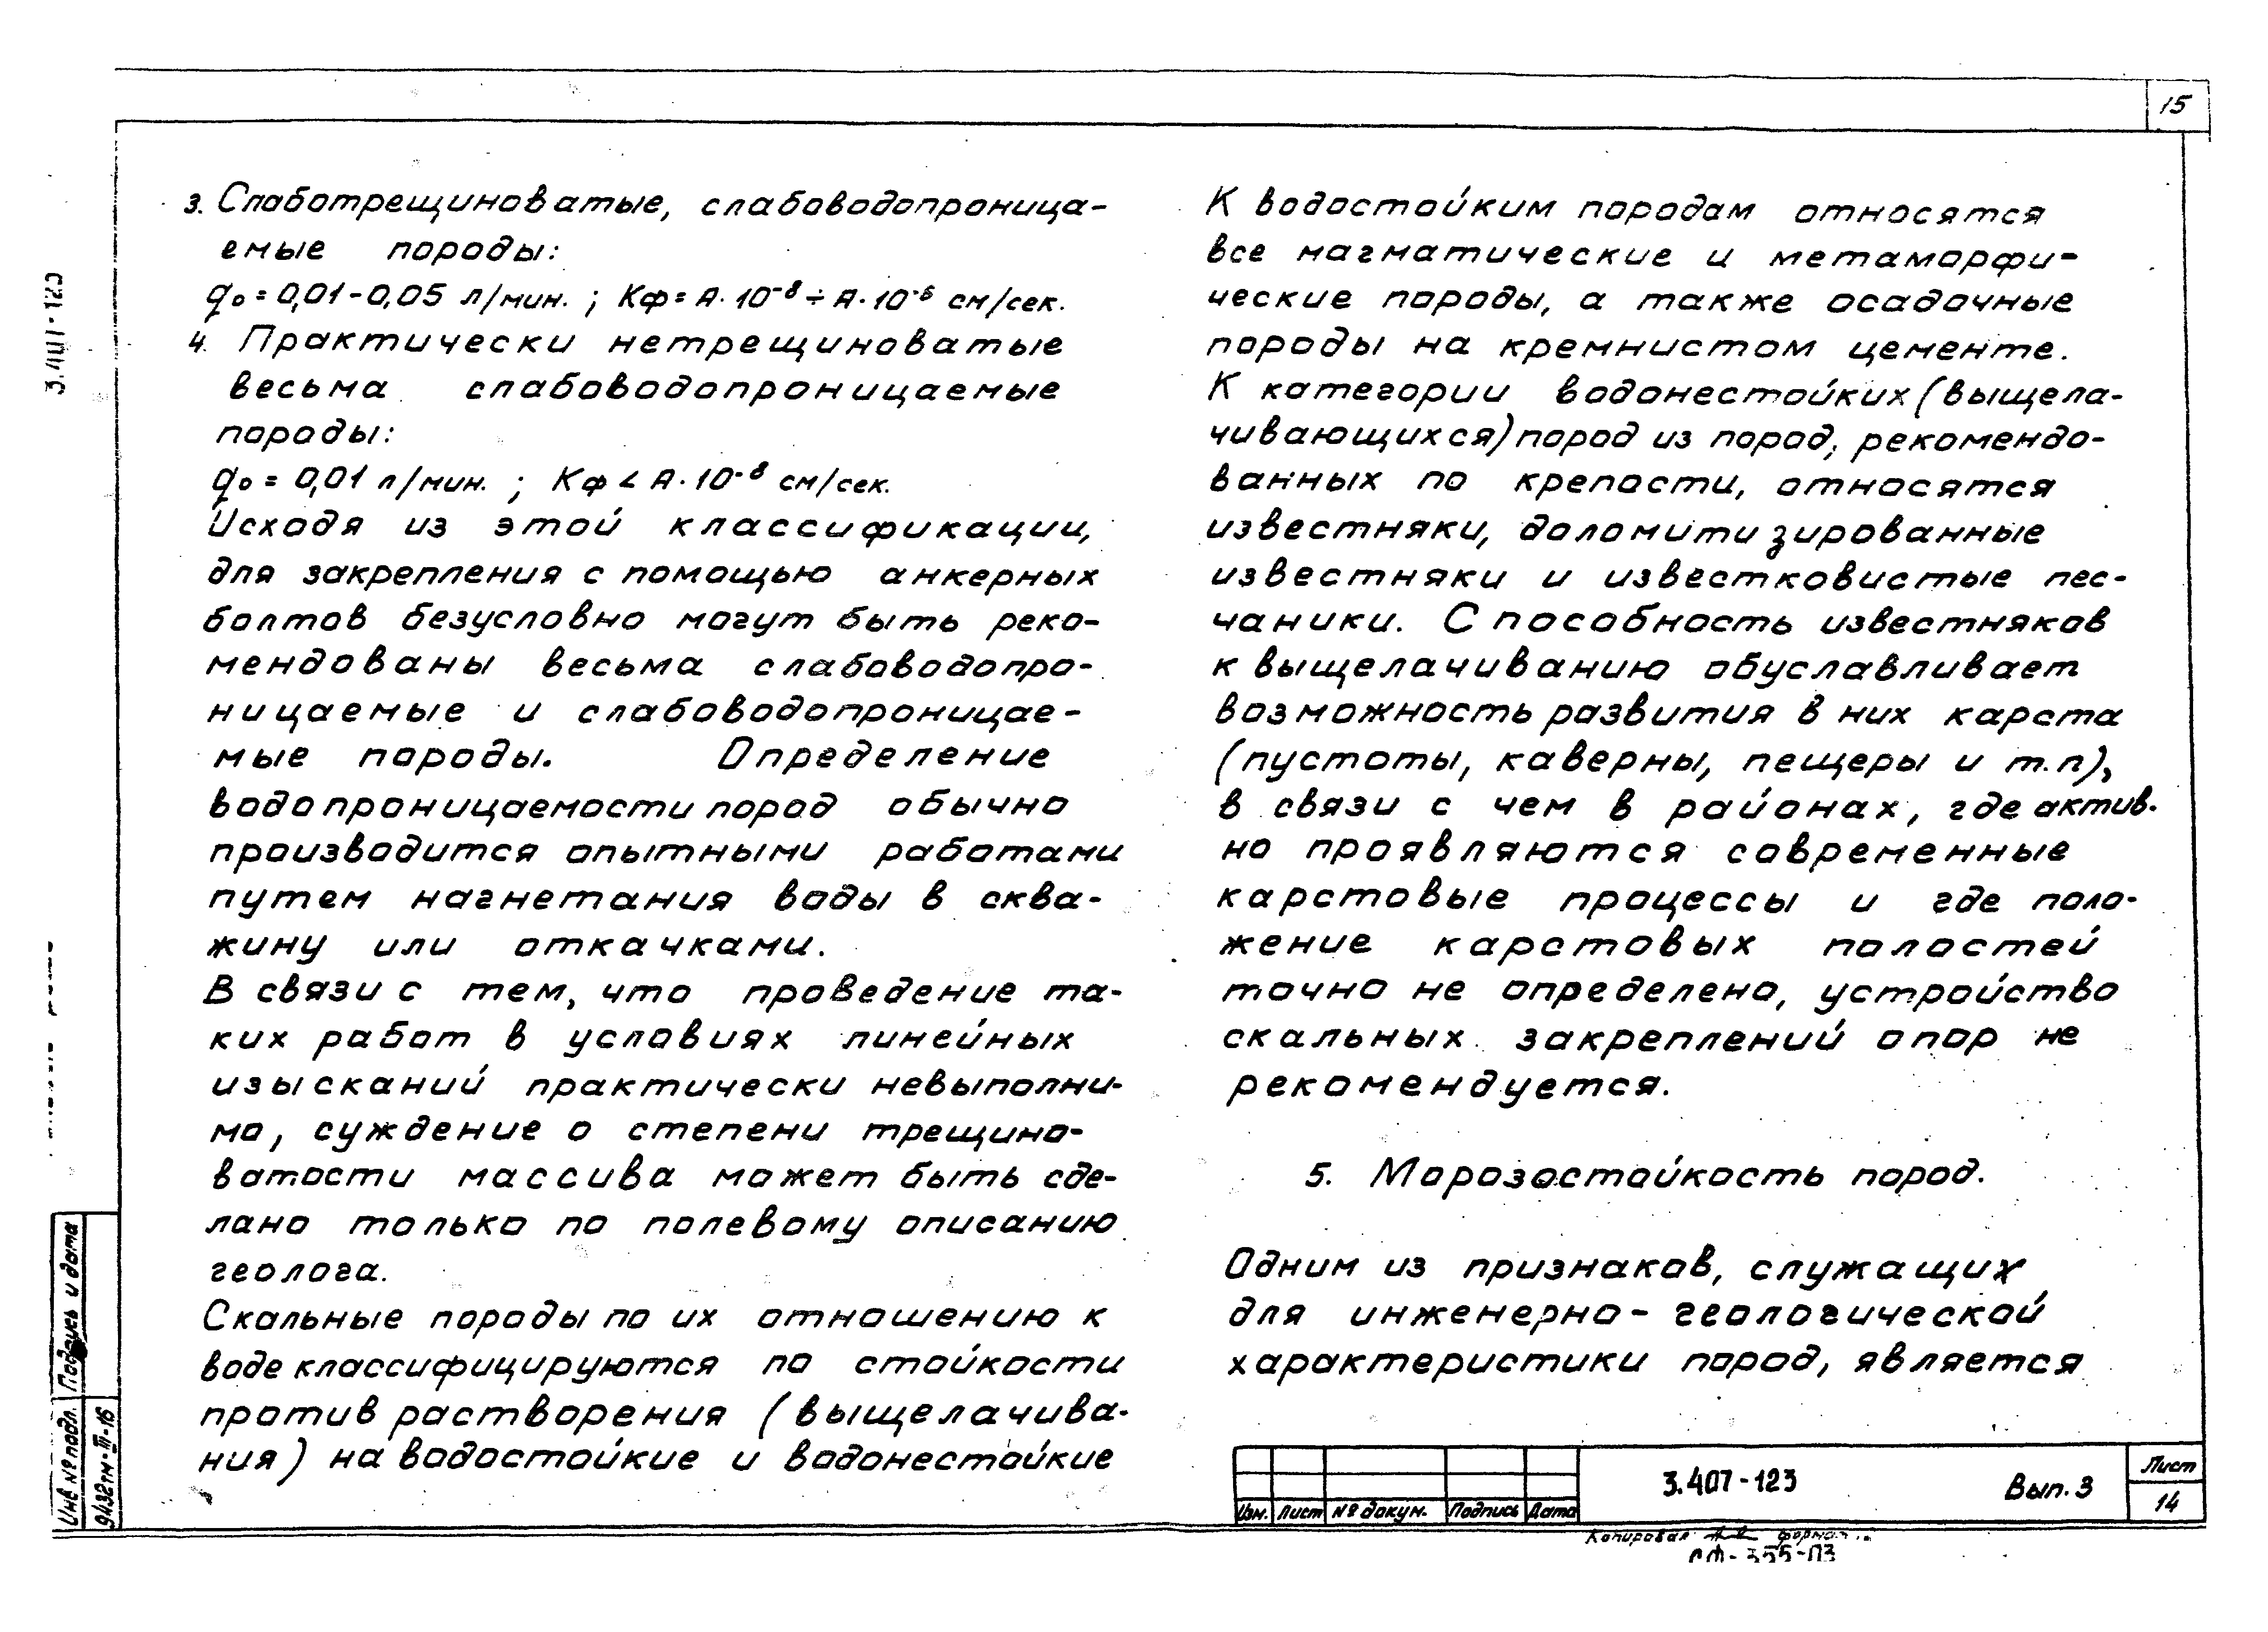 15
3. Слаботрещиноватые, слабоводопроница-
емые породы:
q₀ = 0,01-0,05 л/мин. ; Кф = А·10⁻⁸ ÷ А·10⁻⁶ см/сек.
4. Практически нетрещиноватые
весьма слабоводопроницаемые
породы:
q₀ = 0,01 л/мин. ; Кф < А·10⁻⁸ см/сек.
Исходя из этой классификации,
для закрепления с помощью анкерных
болтов безусловно могут быть реко-
мендованы весьма слабоводопро-
ницаемые и слабоводопроницае-
мые породы. Определение
водопроницаемости пород обычно
производится опытными работами
путем нагнетания воды в сква-
жину или откачками.
В связи с тем, что проведение та-
ких работ в условиях линейных
изысканий практически невыполни-
мо, суждение о степени трещино-
ватости массива может быть сде-
лано только по полевому описанию
геолога.
Скальные породы по их отношению к
воде классифицируются по стойкости
против растворения (выщелачива-
ния) на водостойкие и водонестойкие
К водостойким породам относятся
все магматические и метаморфи-
ческие породы, а также осадочные
породы на кремнистом цементе.
К категории водонестойких (выщела-
чивающихся) пород из пород, рекомендо-
ванных по крепости, относятся
известняки, доломитизированные
известняки и известковистые пес-
чаники. Способность известняков
к выщелачиванию обуславливает
возможность развития в них карста
(пустоты, каверны, пещеры и т.п),
в связи с чем в районах, где актив-
но проявляются современные
карстовые процессы и где поло-
жение карстовых полостей
точно не определено, устройство
скальных закреплений опор не
рекомендуется.
5. Морозостойкость пород.
Одним из признаков, служащих
для инженерно-геологической
характеристики пород, является
Изм. Лист № докум. Подпись Дата
3.407-123 Вып. 3
Лист
14
Копировал формат
СФ-355-03
3.407-123
Подпись и дата
Инв № подл.
9432тм-III-16